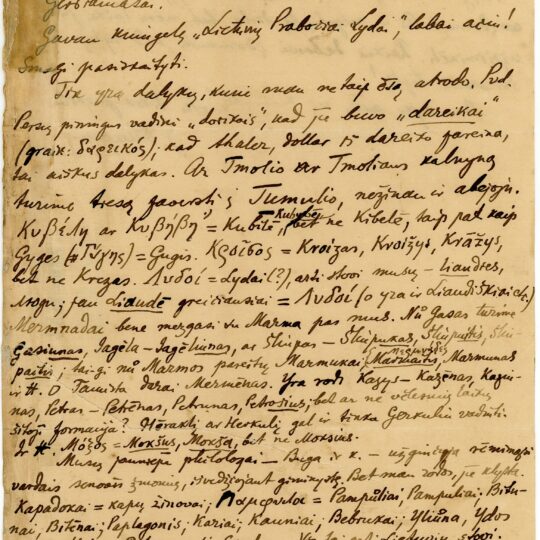 Gerbiamasai.
Gavau kningelę „Lietuvių Prabočiai Lydai", labai ačiu!
Smagi pasiskaityti.
Tik yra dalykų, kurie man netaip čia atrodo. Pvd.
Persų piningus vadini „dorikais", kad jie buvo „dareikai"
(graik: δαρεικός); kad thaler, dollar iš dareiko pareina,
tai aiškus dalykas. Ar Tmolio ar Tmoliaus kalnyną
turime teisę paversti į Tumulio, nežinau ir abejoju.
Κυβέλη ar Κυβήβη = Kubēbē, Kubitė, bet ne Kibelė, taip pat kaip
Gyges (Γύγης) = Gugis. Κροῖσος = Kroizas, Kroižys, Krāžys,
bet ne Krezas. Λυδοί = Lydai (?), arti stovi musų – liaudies,
люди; jau liaudē greičiausiai = Λυδοί (o yra ir Liaudiškiai etc.)
Mermnadai bene mezgasi su Marma pas mus. Nů Gasas turime
Gasiunas, Jagēla – Jagēliunas, ar Skirpas – Skirpukas, Skirputis, Skir-
paitis; tai-gi nů Marmos pareitų Marmukai, Marmunas
ir tt. O Tamista darai Mermėnas. Yra rods Kazys – Kazėnas, Kaziu-
nas, Petras – Petrėnas, Petrunas, Petrošius; bet ar ne vėlesnių laikų
šitoji formacija? Hērakli ar Herkulį gal ir tinka Gerkuliu vadinti.
Ir Μόξος = Mokšus, Mokša, bet ne Moksus.
Musų jaunieji philologai – Buga ir k. – užginčija rėmimąsi
vardais senovės žmonių, išvedžiojant giminystę. Bet man rodos, jie klysta.
Kapadokai = kapų žinovai; Παμφυλοι = Pampuliai, Pampuliai; Bitu-
nai, Bitėnai; Paplagonis, Kariai; Kauniai, Bebrukai; Yliuna, Ydos